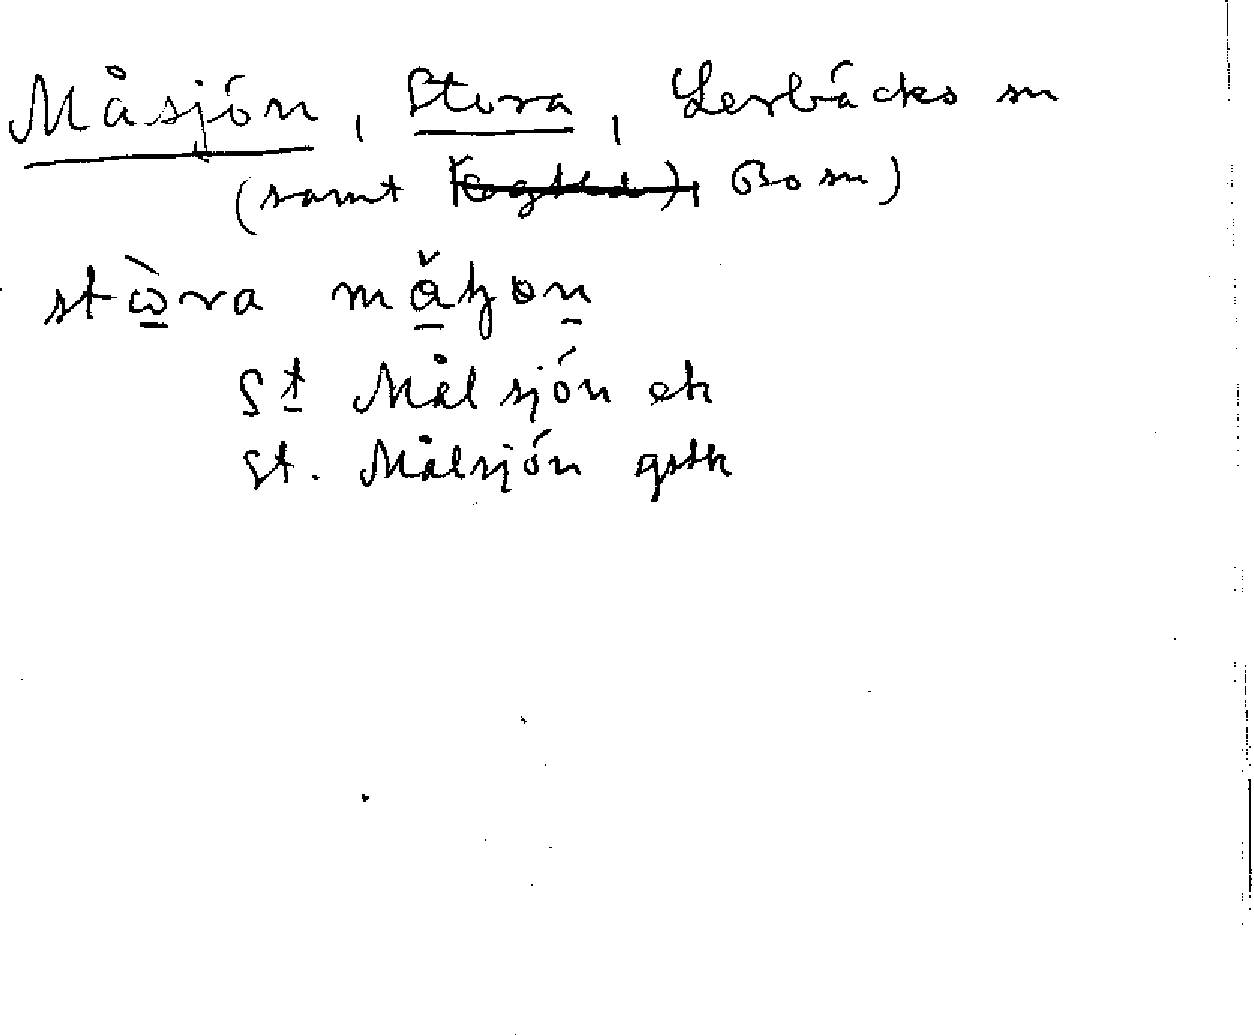 Måsjön, Stora, Lerbäcks sn
(samt Bo sn)
stòra måɧon
St Målsjön ek
St. Målsjön gstk